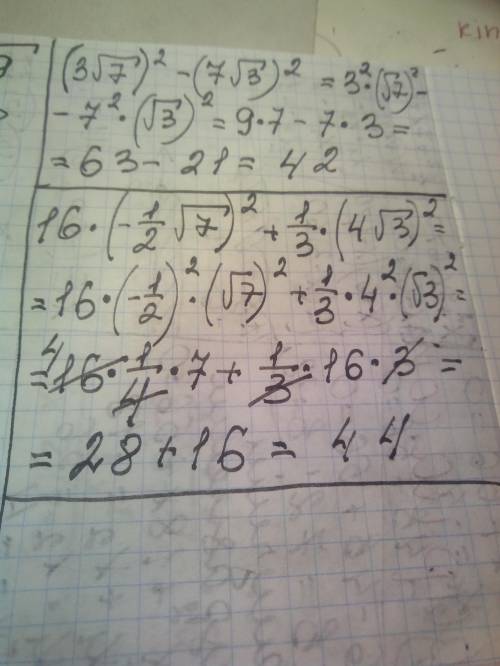 kin
(3√7)² - (7√3)² = 3²·(√7)² -
- 7²·(√3)² = 9·7 - 7·3 =
= 63 - 21 = 42
16·(-1/2 √7)² + 1/3·(4√3)² =
= 16·(-1/2)²·(√7)² + 1/3·4²·(√3)² =
= 4 16·1/4·7 + 1/3·16·3 =
= 28 + 16 = 44